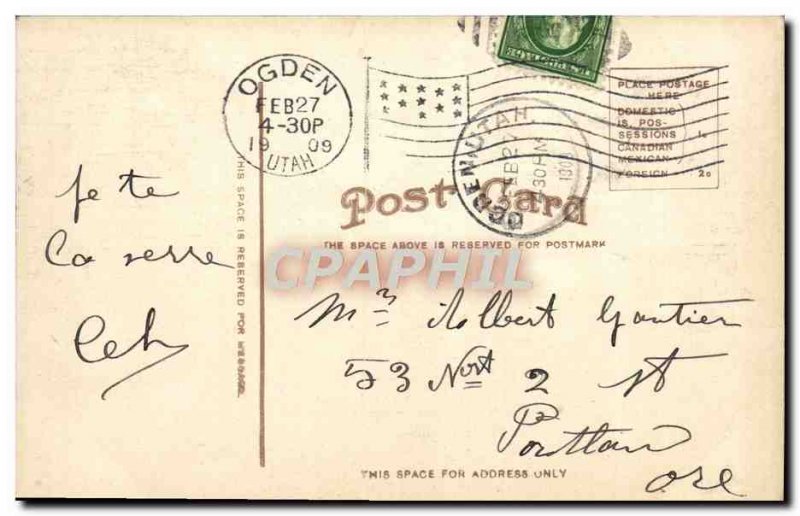 OGDEN
FEB 27
4-30P
19 09
UTAH
OGDEN, UTAH.
FEB 27
30 PM
PLACE POSTAGE
HERE
DOMESTIC
IS. POS-
SESSIONS 1c
CANADIAN
MEXICAN
FOREIGN 2c
Post Card
THE SPACE ABOVE IS RESERVED FOR POSTMARK
CPAPHIL
THIS SPACE IS RESERVED FOR MESSAGE
je te
La serre
Mr Albert Gautier
53 Nort 2 st
Portlan
ore
THIS SPACE FOR ADDRESS ONLY